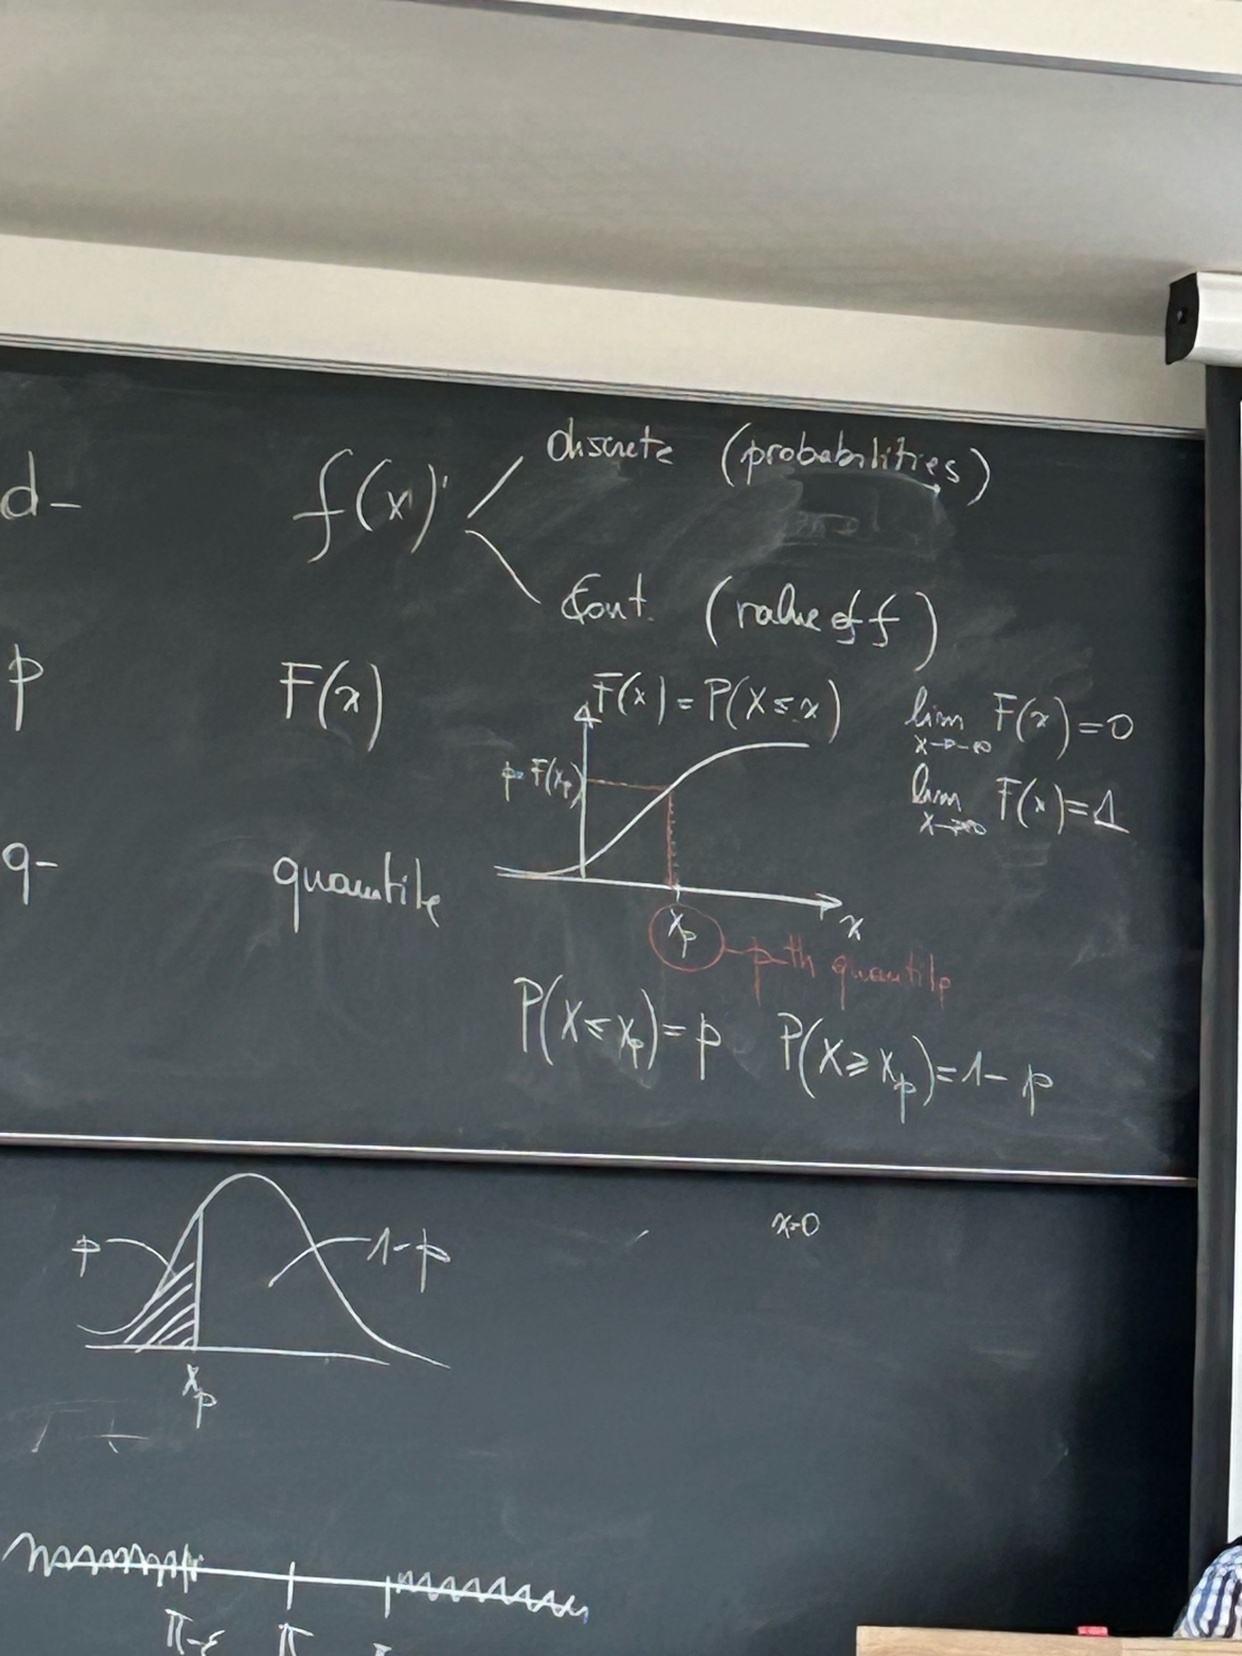 d-
f(x)
discrete (probabilities)
Cont. (value of f)
p
F(x)
F(x) = P(X ≤ x)
lim F(x) = 0
x → -∞
lim F(x) = 1
x → ∞
p = F(xp)
q-
quantile
x
xp
pth quantile
P(X ≤ xp) = p P(X ≥ xp) = 1 - p
x=0
p
1-p
xp
π-ε π